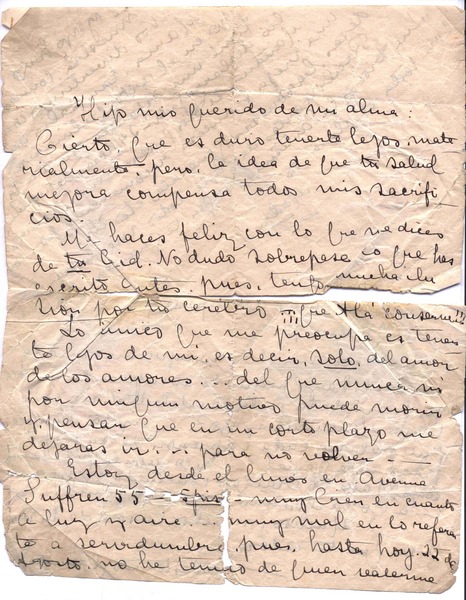 Hijo mio querido de mi alma:
Cierto, que es duro tenerte lejos, mate
rialmente, pero, la idea de que tu salud
mejora compensa todos mis sacrifi
cios.
Me haces feliz con lo que me dices
de tu Cid. No dudo sobrepase lo que has
escrito antes, pues, tengo mucha ilu
sion por tu cerebro !!! que Alá conserve!!!
Lo único que me preocupa es tener
te lejos de mi, es decir, solo, del amor
de los amores... del que nunca ni
por ningun motivo puede morir
y pensar que en un corto plazo me
dejaras ir... para no volver —
Estoy desde el lunes en Avenue
Suffren 55 — 5 piso — muy bien en cuanto
a luz y aire... muy mal en lo referen
te a servidumbre pues, hasta hoy 22 de
Agosto no he tenido de quien valerme